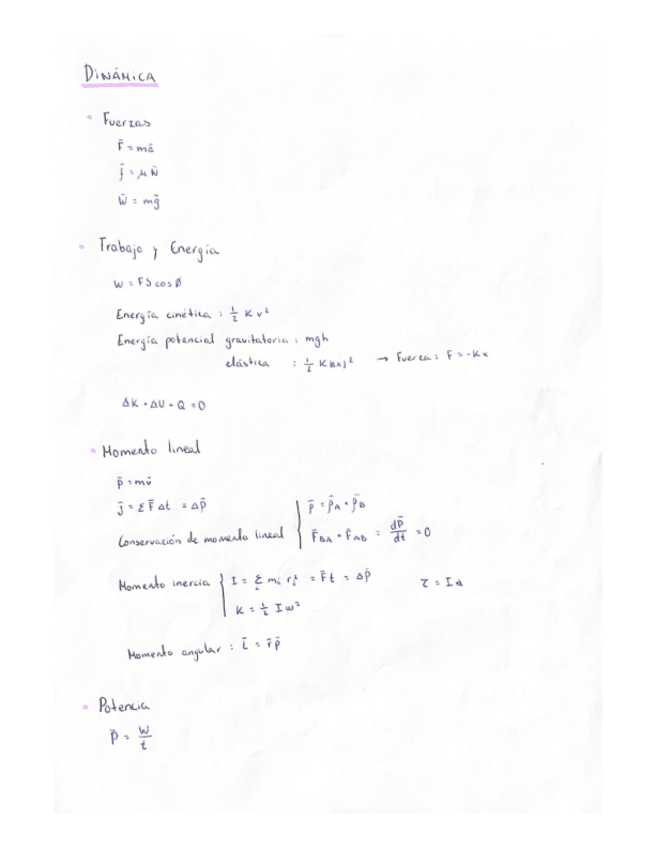 DINÁMICA
• Fuerzas
F̄ = mā
f̄ = μN̄
W̄ = mḡ
• Trabajo y Energía
W = FS cos Ø
Energía cinética : 1/2 K v²
Energía potencial gravitatoria : mgh
elástica : 1/2 K(Δx)² → Fuerza : F = -Kx
ΔK + ΔU + Q = 0
• Momento lineal
p̄ = mv̄
j̄ = Σ F̄ Δt = Δp̄
p̄ = p̄A + p̄B
Conservación de momento lineal
F̄BA + F̄AB = dp̄/dt = 0
Momento inercia { I = Σi mi ri² = F̄t = Δp̄ τ = Iα
K = 1/2 I w²
Momento angular : L̄ = r̄p̄
• Potencia
P̄ = W/t